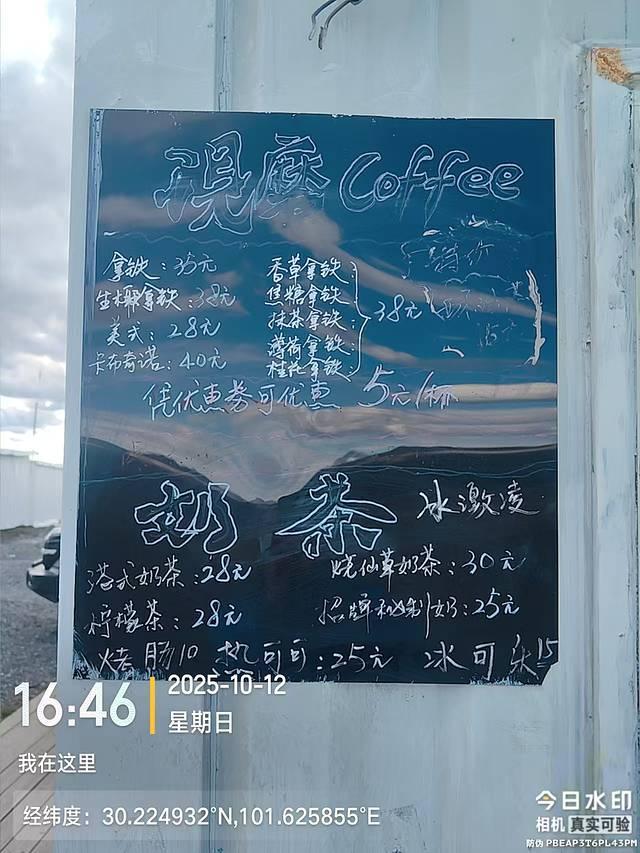 現磨 Coffee
拿铁：35元
生椰拿铁：38元
美式：28元
卡布奇诺：40元
香草拿铁：
焦糖拿铁
抹茶拿铁：
薄荷拿铁：
桂花拿铁：
38元
特价
凭优惠券可优惠 5元/杯
奶 茶 冰激凌
港式奶茶：28元
烧仙草奶茶：30元
柠檬茶：28元
招牌秘制奶：25元
烤肠10 热可可：25元 冰可乐15
16:46
2025-10-12
星期日
我在这里
经纬度：30.224932°N,101.625855°E
今日水印
相机 真实可验
防伪 PBEAP3T6PL43PM